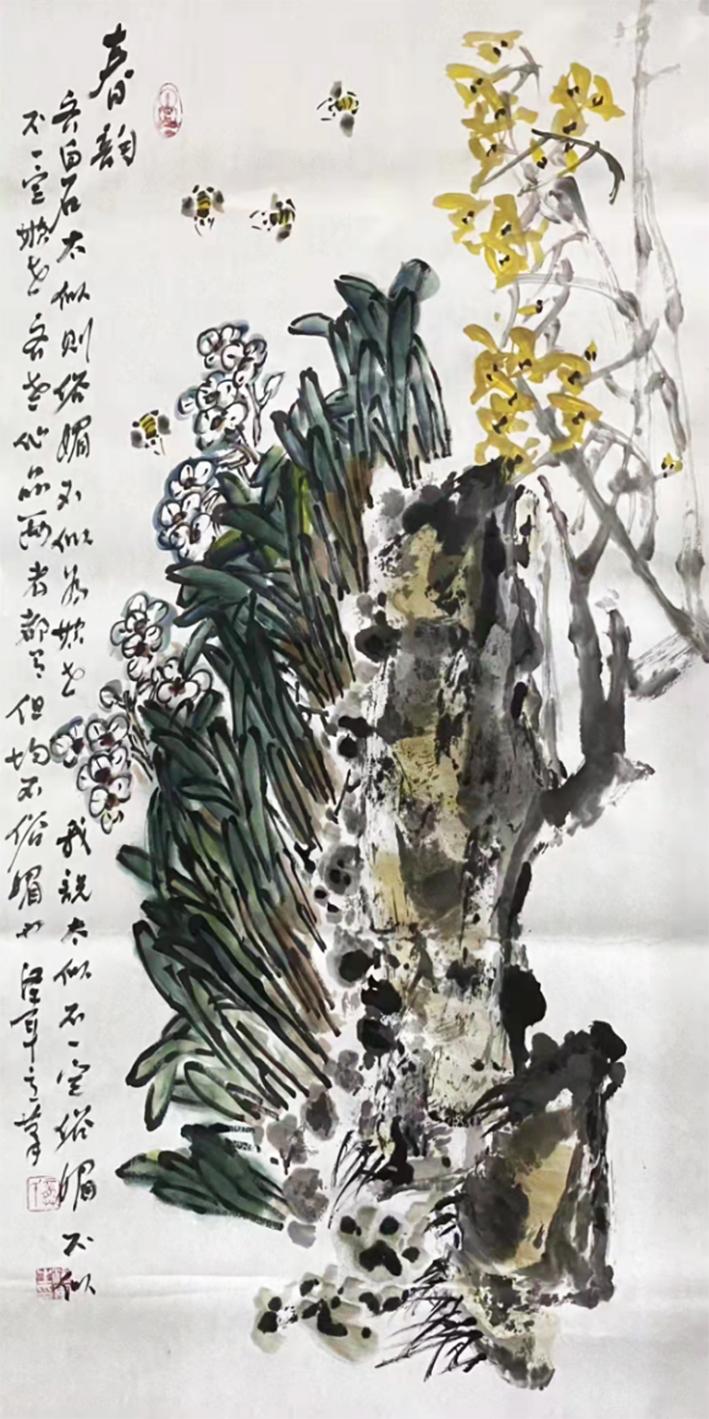 春韵
齐白石太似则俗媚不似为欺世 我说太似不一定俗媚不似
不一定欺世 吾老之作品两者都有 但均不俗媚也